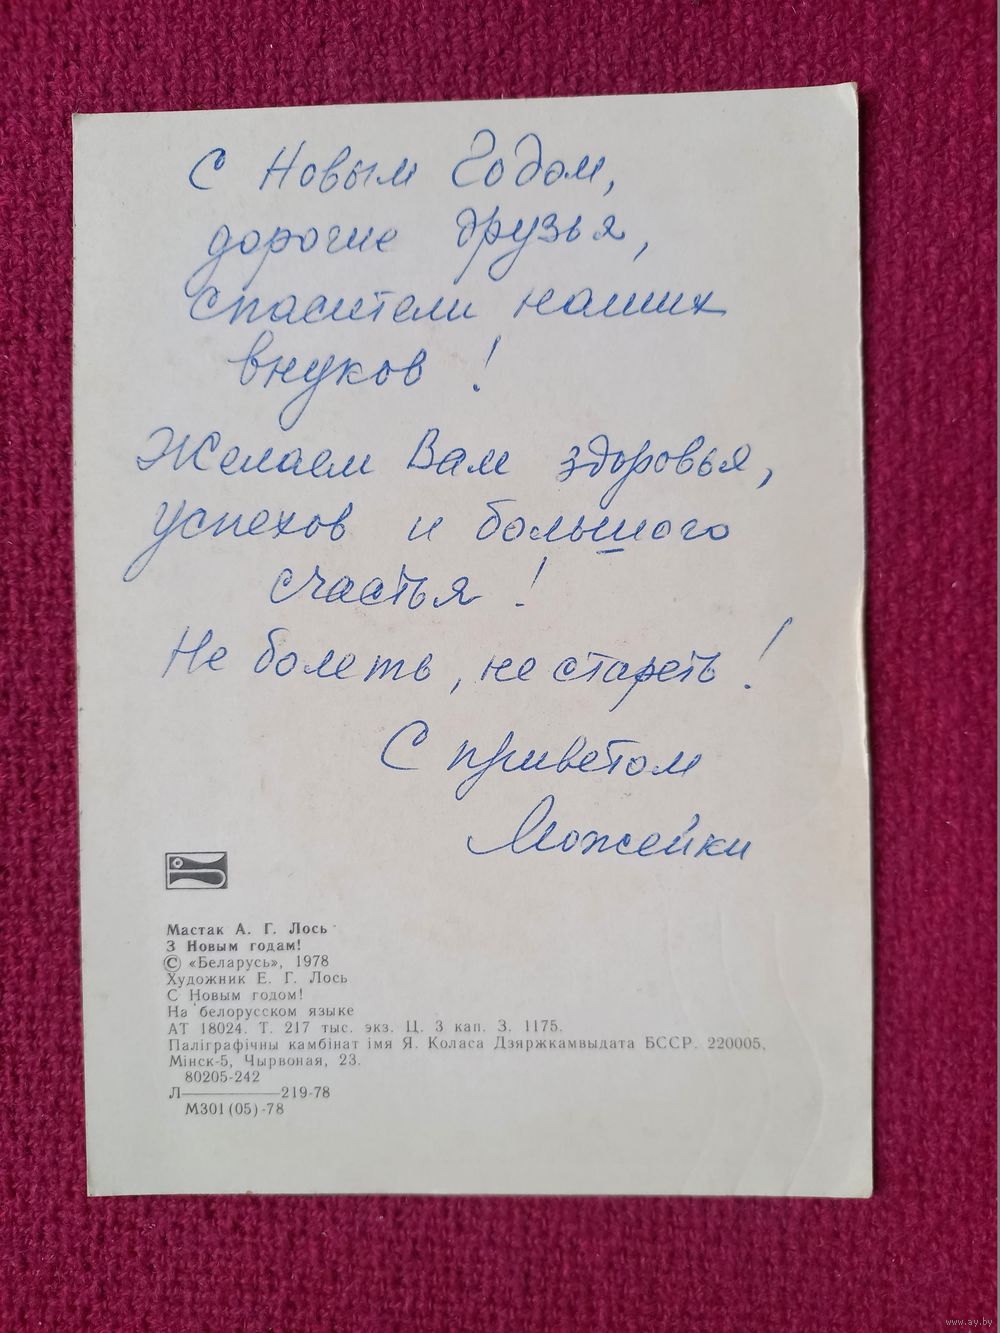 С Новым Годом,
дорогие друзья,
спасители наших
внуков !
Желаем Вам здоровья,
успехов и большого
счастья !
Не болеть, не стареть !
С приветом
Можейки
Мастак А. Г. Лось
З Новым годам!
© «Беларусь», 1978
Художник Е. Г. Лось
С Новым годом!
На белорусском языке
АТ 18024. Т. 217 тыс. экз. Ц. 3 кап. З. 1175.
Паліграфічны камбінат імя Я. Коласа Дзяржкамвыдата БССР. 220005,
Мінск-5, Чырвоная, 23.
80205-242
Л————219-78
М301(05)-78
www.ay.by